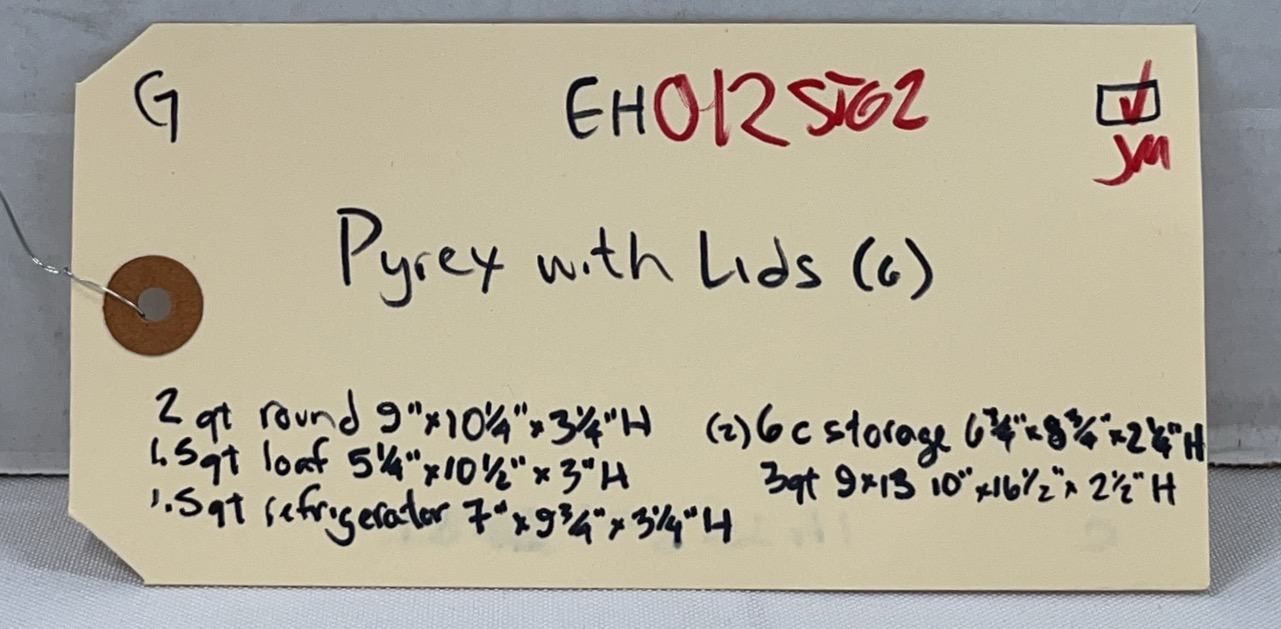 G
EH012 STG2
JM
Pyrex with Lids (6)
2 qt round 9"x10¼"x3¼"H
1.5qt loaf 5¼"x10½"x3"H
1.5qt refrigerator 7"x9¾"x3¼"H
(2) 6c storage 6¾"x8¾"x2¼"H
3qt 9x13 10"x16½"x2½"H